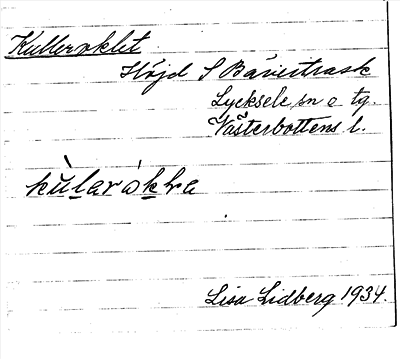 Kulleroklet
Höjd S Bäverträsk
Lycksele sn o tg.
Västerbottens l.
Lisa Lidberg 1934.